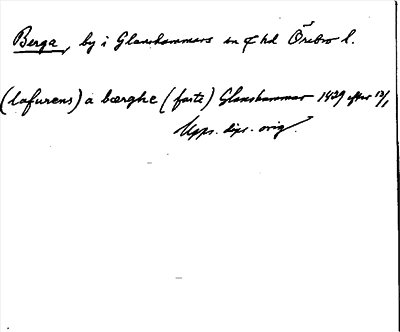 Berga, by i Glanshammars sn o hd Örebro l.
(lafurens) a bærghe (faste) Glanshammar 1429 efter 13/1
Upps. dipl. orig.